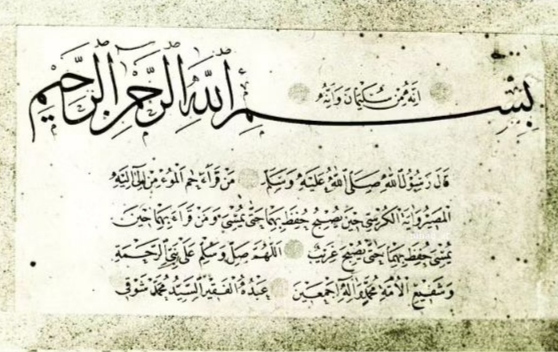 اِنَّهُ مِنْ سُلَيْمَانَ وَاِنَّهُ
بِسْمِ اللهِ الرَّحْمٰنِ الرَّحِيمِ
قَالَ رَسُولُ اللهِ صَلَّى اللهُ عَلَيْهِ وَسَلَّمَ مَنْ قَرَأَ حٰمٓ الْمُؤْمِنَ اِلَى اِلَيْهِ
الْمَصِيرُ وَاٰيَةَ الْكُرْسِيِّ حِينَ يُصْبِحُ حُفِظَ بِهِمَا حَتَّى يُمْسِيَ وَمَنْ قَرَأَ بِهِمَا حِينَ
يُمْسِي حُفِظَ بِهِمَا حَتَّى يُصْبِحَ غَرِيبٌ اَللّٰهُمَّ صَلِّ وَسَلِّمْ عَلَى نَبِيِّ الرَّحْمَةِ
وَشَفِيعِ الْاُمَّةِ مُحَمَّدٍ وَاٰلِهِ اَجْمَعِينَ عَبْدُهُ الْفَقِيرُ السَّيِّدُ مُحَمَّدْ شَوْقِي